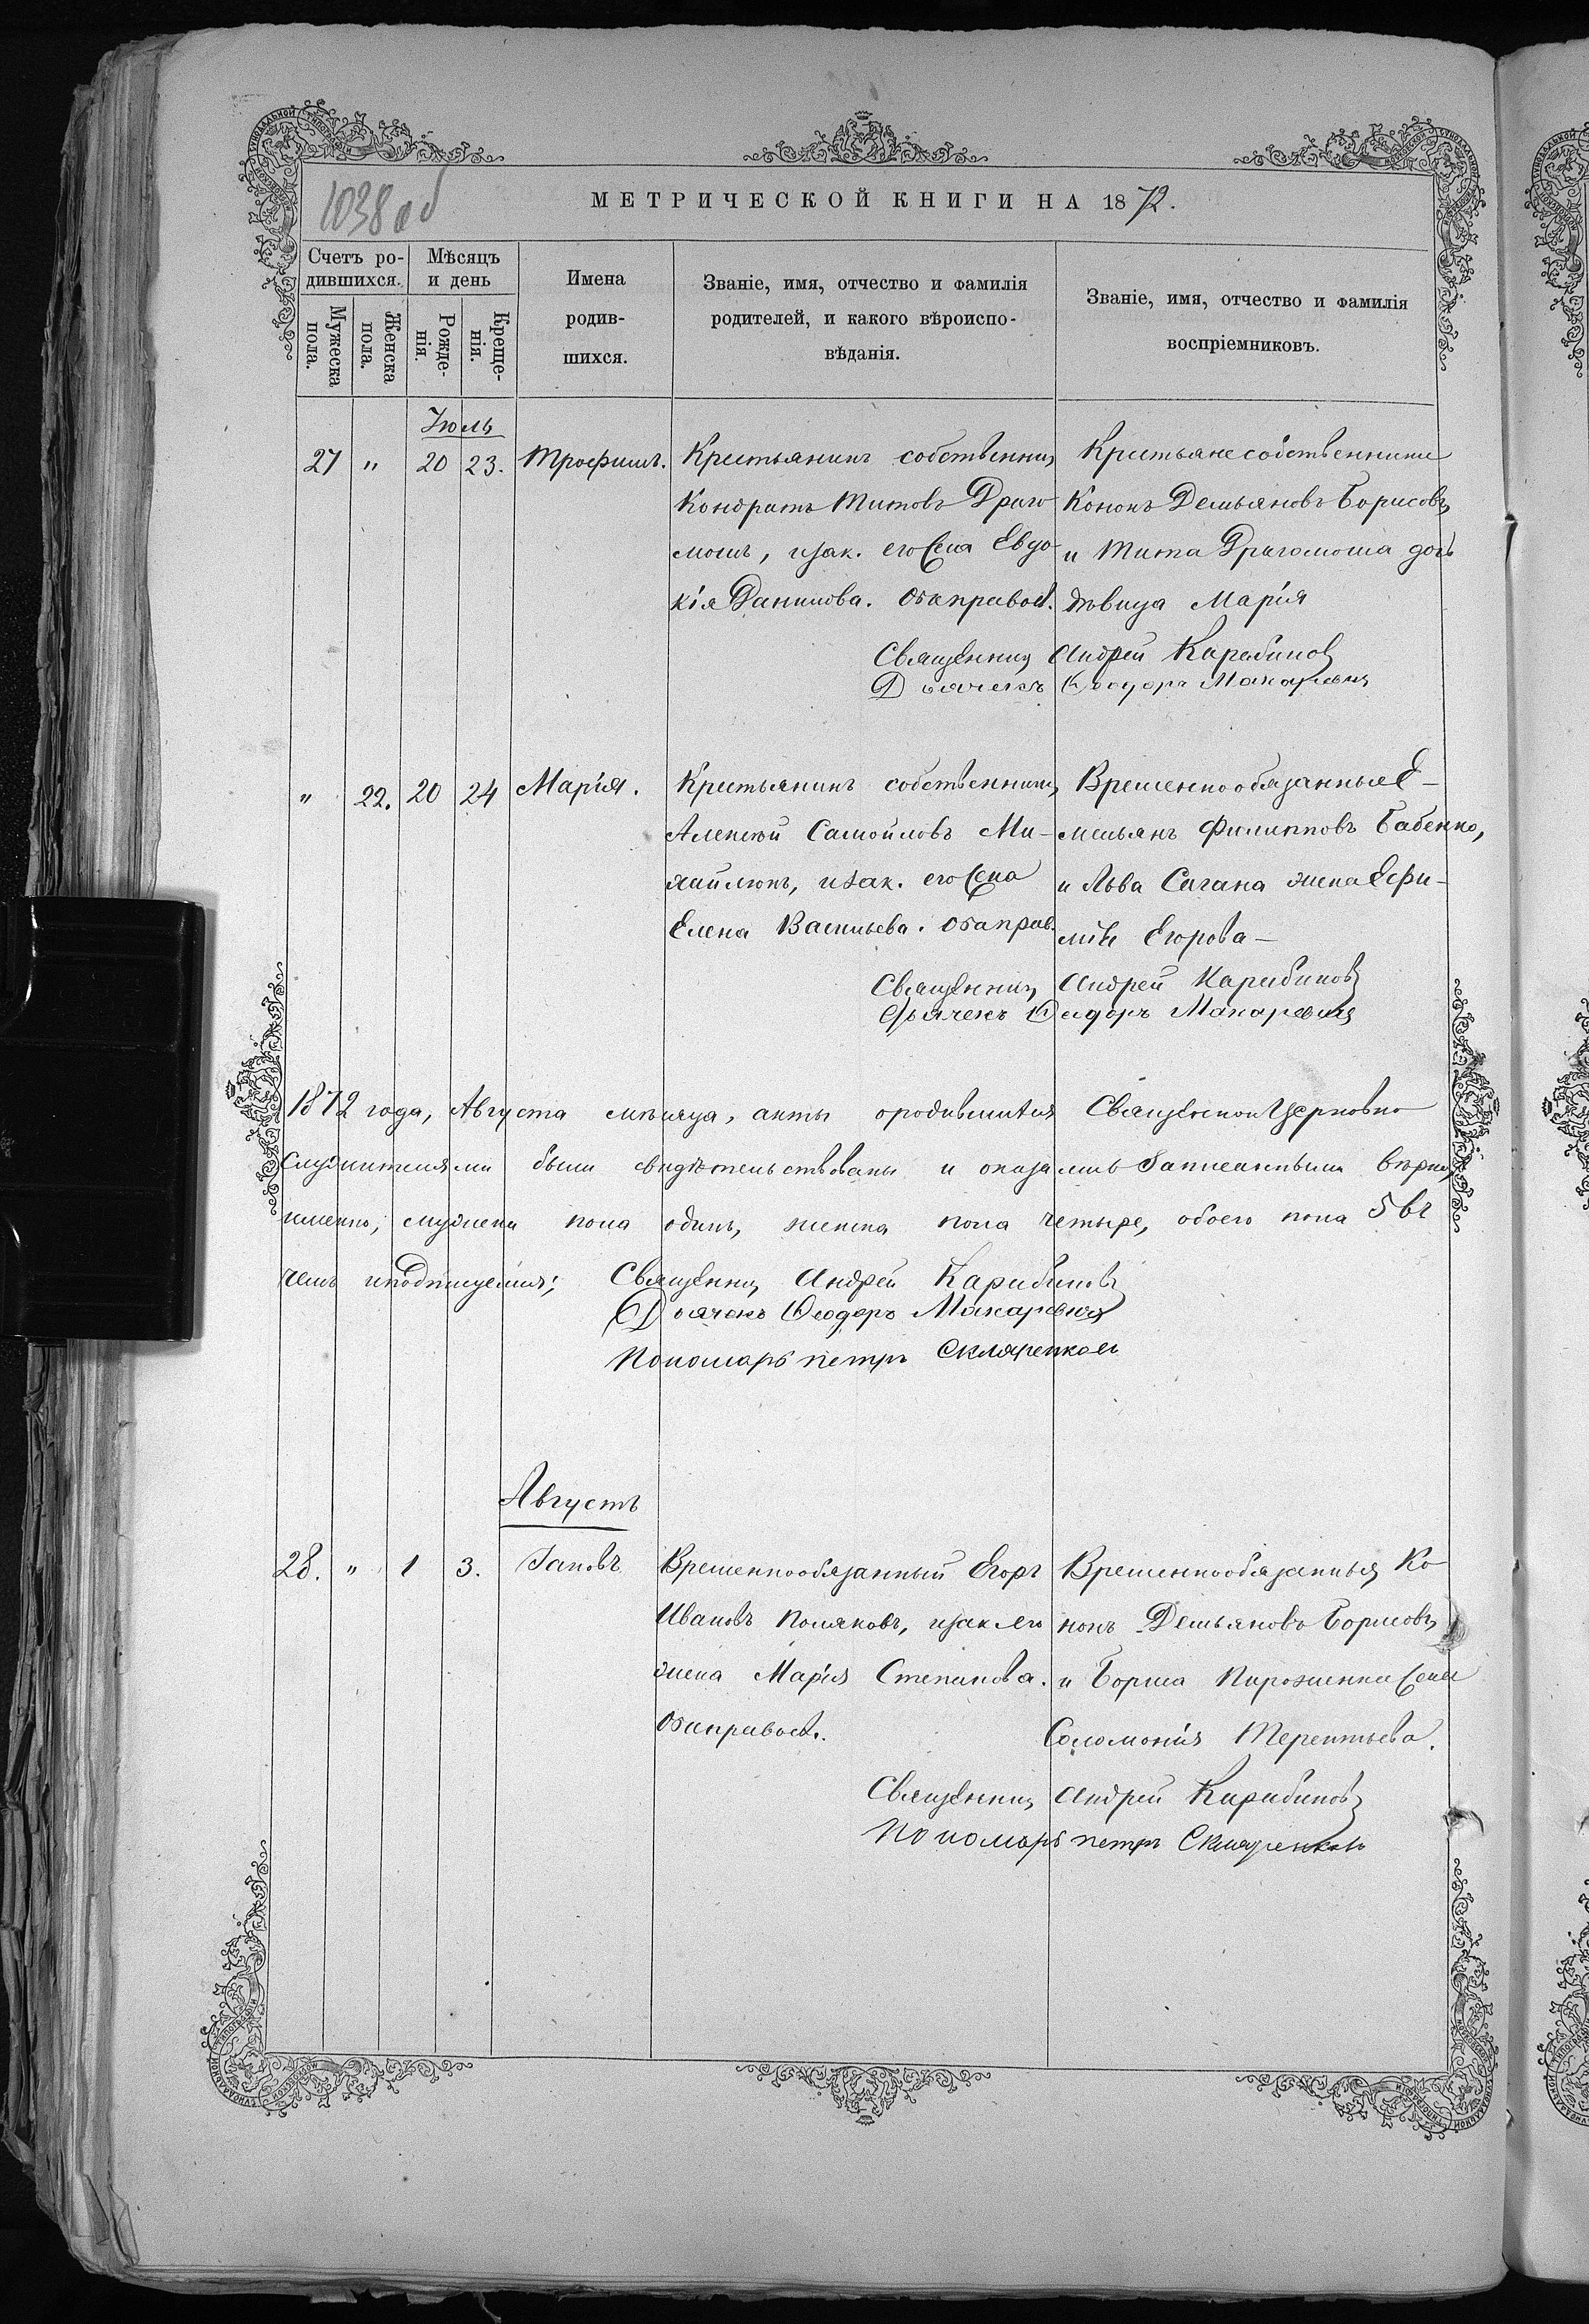 1038 об
МЕТРИЧЕСКОЙ КНИГИ НА 1872.
Счетъ ро-
дившихся.
Мужеска пола.
Женска пола.
Мѣсяцъ
и день
Рожде-
нія.
Креще-
нія.
Имена
родив-
шихся.
Званіе, имя, отчество и фамилія
родителей, и какого вѣроиспо-
вѣданія.
Званіе, имя, отчество и фамилія
воспріемниковъ.
Іюль
27 " 20 23. Трофимъ.
Крестьянинъ собственникъ
Кондратъ Титовъ Драго-
мошъ, и зак. его жена Евдо-
кія Данилова. Оба правосл.
Крестьяне собственники
Кононъ Демьяновъ Борисовъ
и Тита Драгомоша дочь
дѣвица Марія
Священникъ Андрей Карабиновъ
Дьячекъ Ѳеодоръ Макаревичъ
" 22. 20 24 Марія.
Крестьянинъ собственникъ
Алексѣй Самойловъ Ми-
хайлюкъ, и зак. его жена
Елена Васильева. Оба прав.
Временнообязанные Е-
мельянъ Филипповъ Бабенко,
и Льва Сагана жена Ефи-
мія Егорова —
Священникъ Андрей Карабиновъ
Дьячекъ Ѳеодоръ Макаревичъ
1872 года, Августа мѣсяца, акты о родившихся Священно и Церковно
служителями были свидѣтельствованы и оказались записанными вѣрно,
именно, мужска пола одинъ, женска пола четыре, обоего пола 5 въ
чемъ и подпишемся;
Священникъ Андрей Карабиновъ
Дьячекъ Ѳеодоръ Макаревичъ
Пономарь Петръ Скляренковъ
Августъ
28. " 1 3. Іаковъ
Временнообязанный Егоръ
Ивановъ Поляковъ, и зак его
жена Марія Степанова.
Оба правосл.
Временнообязанныя Ко-
нонъ Демьяновъ Борисовъ,
и Бориса Пироженка жена
Соломонія Терентьева.
Священникъ Андрей Карабиновъ
Пономарь Петръ Скляренковъ